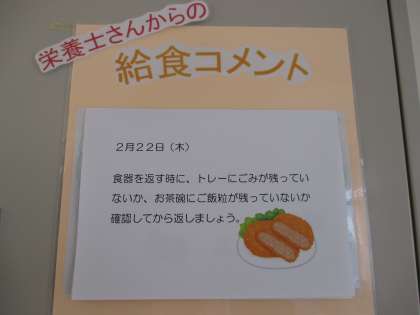 栄養士さんからの
給食コメント
2月22日（木）
食器を返す時に、トレーにごみが残ってい
ないか、お茶碗にご飯粒が残っていないか
確認してから返しましょう。